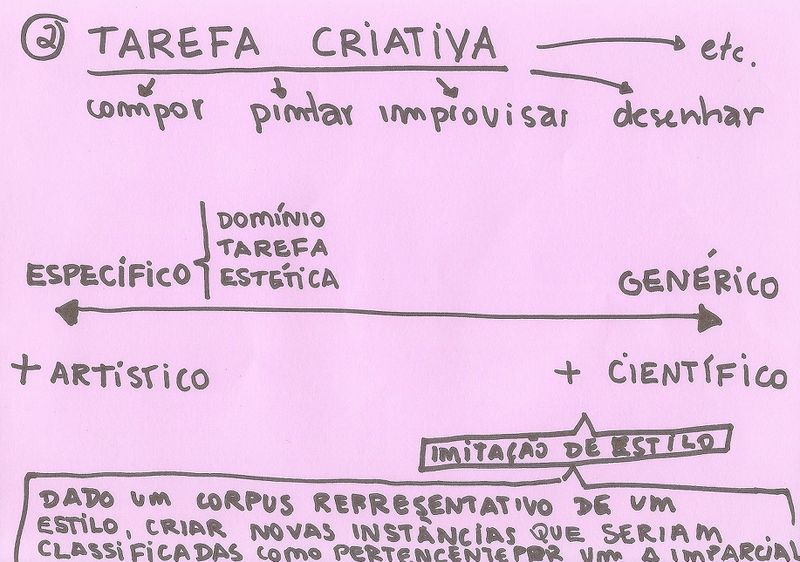 2 TAREFA CRIATIVA etc.
compor pintar improvisar desenhar
DOMÍNIO
TAREFA
ESPECÍFICO ESTÉTICA GENÉRICO
+ ARTÍSTICO + CIENTÍFICO
IMITAÇÃO DE ESTILO
DADO UM CORPUS REPRESENTATIVO DE UM
ESTILO, CRIAR NOVAS INSTÂNCIAS QUE SERIAM
CLASSIFICADAS COMO PERTENCENTE POR UM A IMPARCIAL